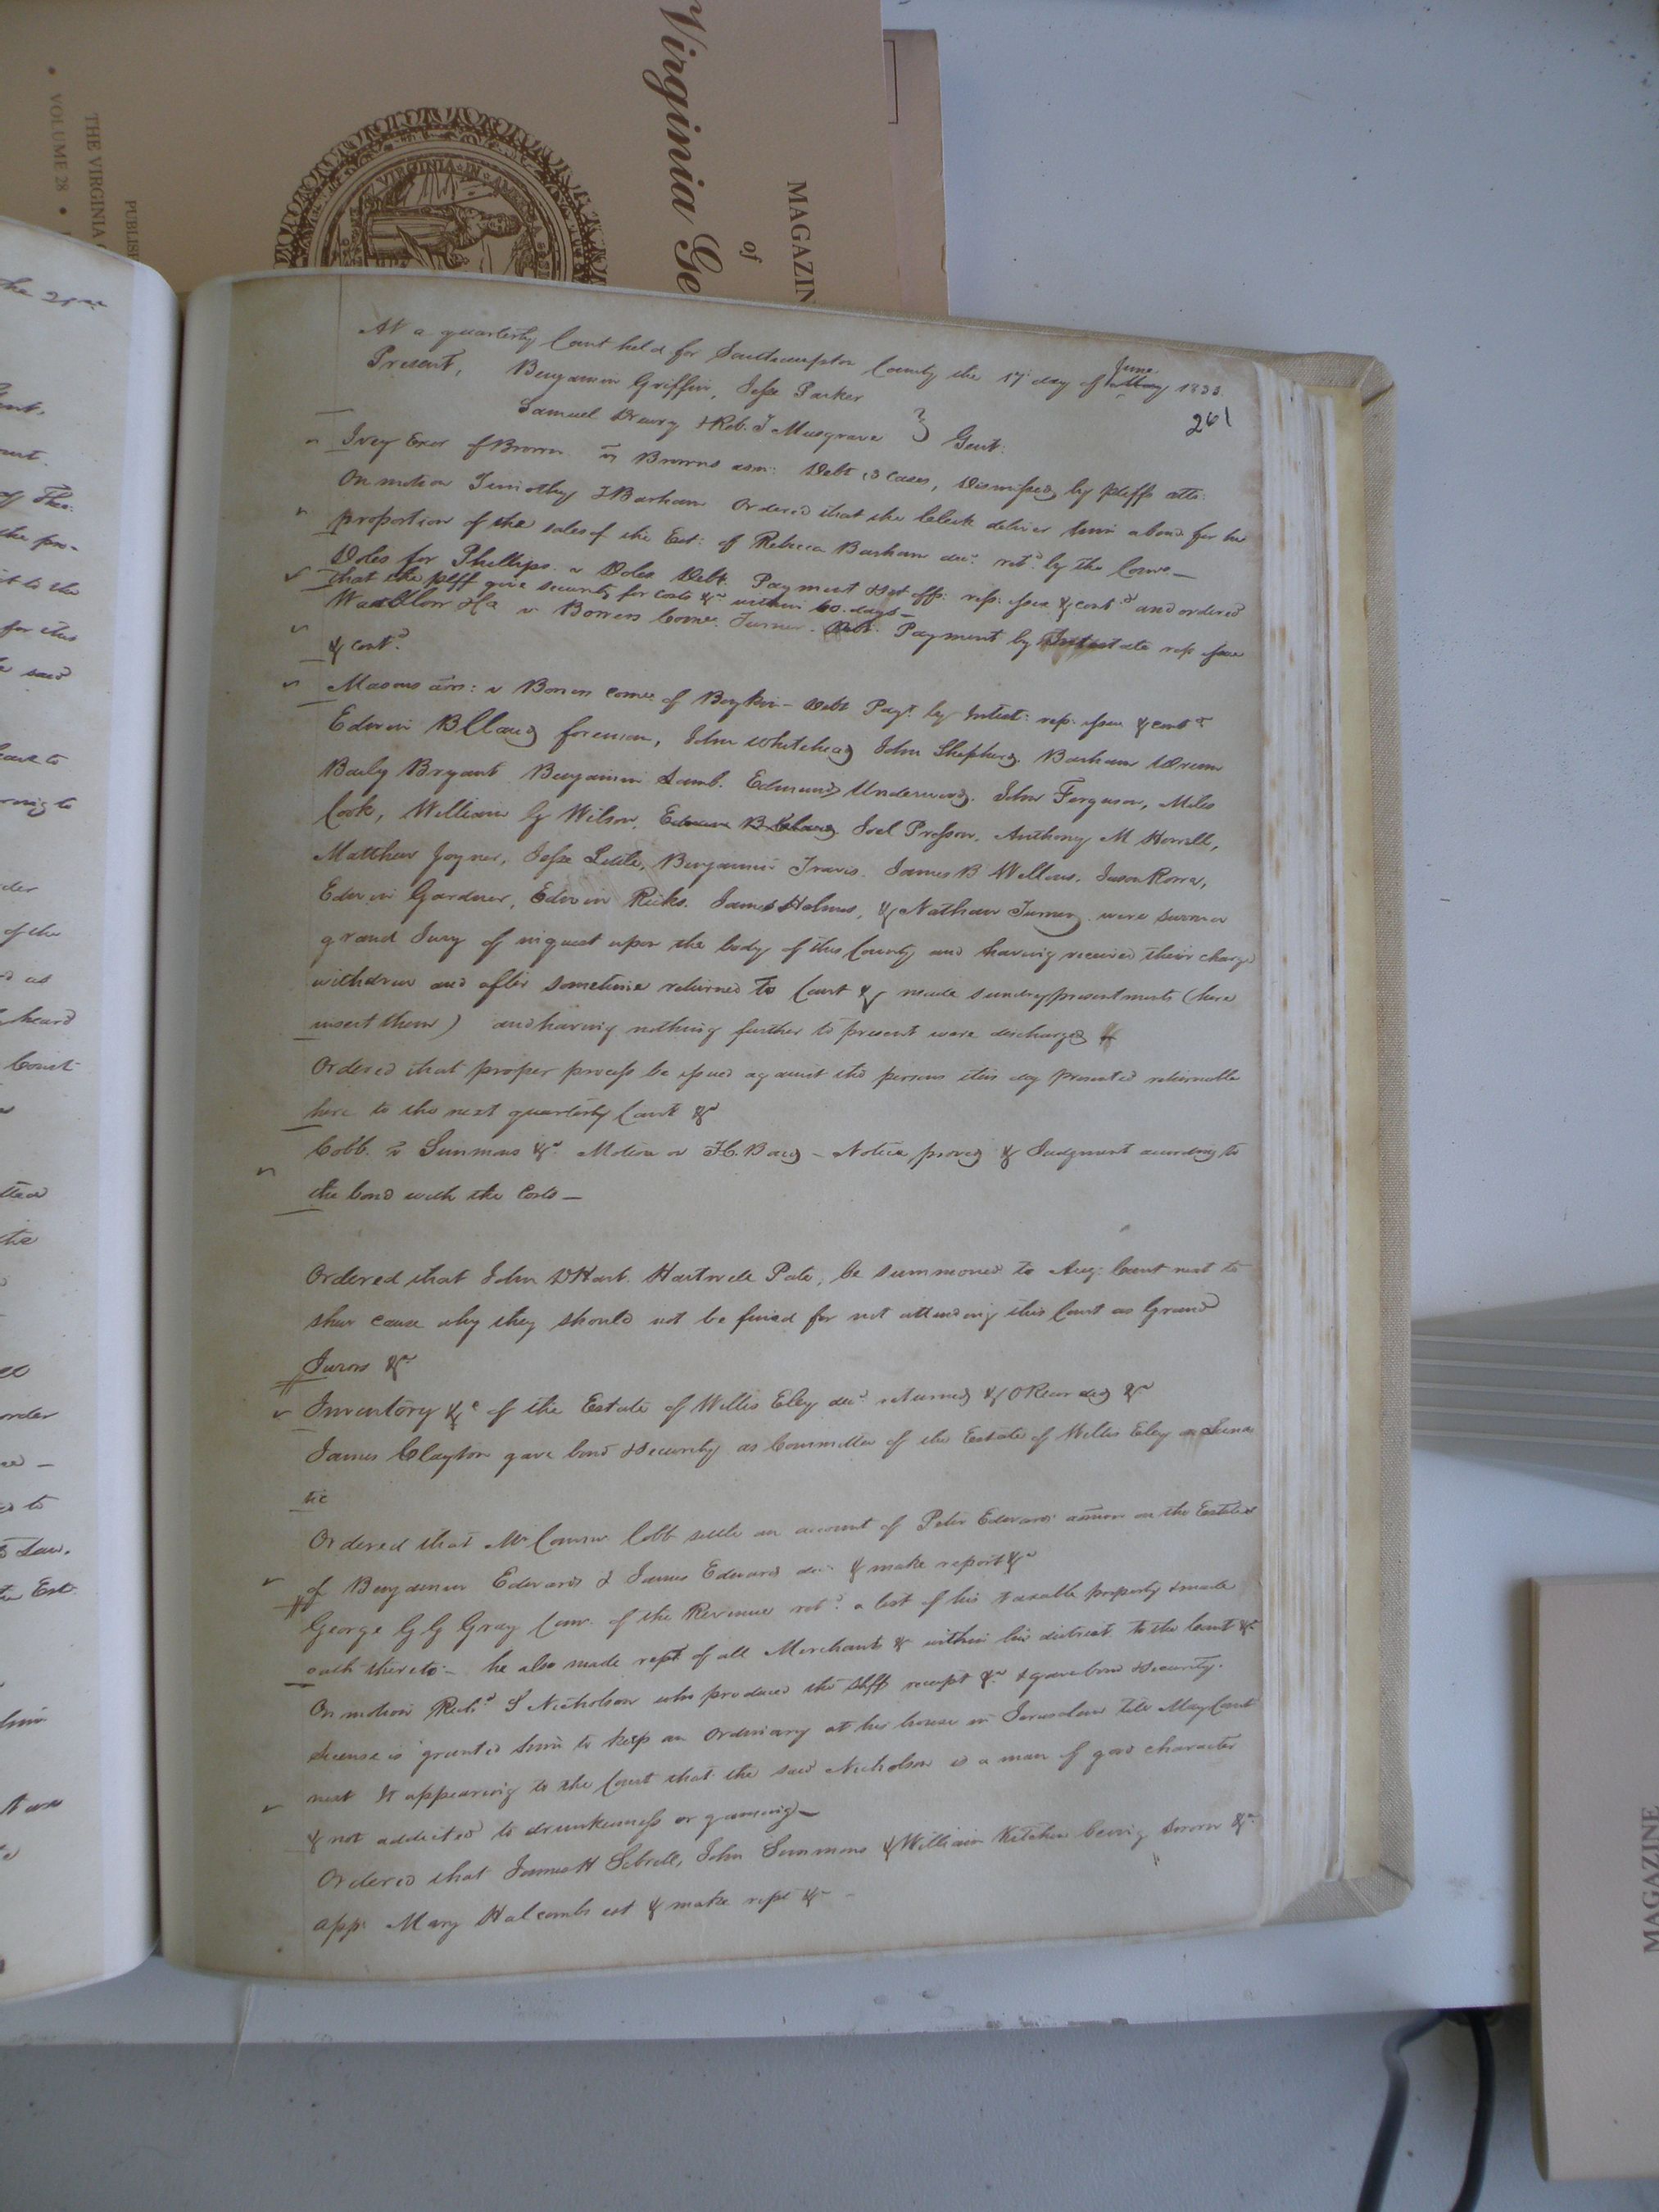 THE VIRGINIA
VOLUME 28
PUBLISH
VIRGINIA IN
Virginia Ge
of
MAGAZIN
At a quarterly Court held for Southampton County the 17th day of May June 1833.
261
Present, Benjamin Griffin, Jesse Parker
Samuel Drewry & Rob. T Musgrave } Gent:
Ivey Exor of Brown vs Browns adm: Debt 3 cases, Dismissed by plffs atto:
On motion Timothy T Barham Ordered that the Clerk deliver him a bond for his
proportion of the sales of the Est: of Rebecca Barham decd. retd. by the Comr —
Doles for Phillips v Doles Debt. Payment & set offs: rep: issue & contd. and ordered
that the plff give security for costs &c within 60 days —
v Bowers Comee. Turner. Debt. Payment by Intestate rep issue
& contd.
Masons adm: v Bowers comee of Boykin — Debt Payt. by Intest: rep. issue & contd
Edwin B Claud foreman, John Whitehead John Shepherd. Barham
Baily Bryant Benjamin Lamb. Edmund Underwood. John Ferguson, Miles
Cook, William G Wilson, Edwin B Claud Joel Presson. Anthony M Howell,
Matthew Joyner, Jesse Little, Benjamin Travis. James B Mellons. Jason Rowe,
Edwin Gardner, Edwin Ricks. James Holmes, & Nathan Turner. were sworn a
grand Jury of inquest upon the body of this County and having received their charge
withdrew and after sometime returned to Court & made sundry presentments (here
insert them) and having nothing further to present were discharged
Ordered that proper process be issued against the persons this day presented returnable
here to the next quarterly Court &c
Cobb. v Simmons &c Motion on Bond — Notice proved & Judgment according to
the bond with the Costs —
Ordered that John D Hart. Hartwell Pate, be summoned to Aug: Court next to
shew cause why they should not be fined for not attending this Court as Grand
Jurors &c
Inventory &c of the Estate of Willis Eley decd. returned & ORecorded &c
James Clayton gave bond & security as Committee of the Estate of Willis Eley a Luna
tic
Ordered that Mr Commr Cobb settle an account of Peter Edwards admon on the Estates
of Benjamin Edwards & James Edwards decd & make report &c
George G G Gray Comr. of the Revenue retd. a list of his taxable property & made
oath thereto — he also made rept of all Merchants & within his district to the Court &c
On motion Richd S Nicholson who produced the Shffs receipt &c & gave bond & security.
License is granted him to keep an Ordinary at his house in Jerusalem till May Court
next It appearing to the Court that the said Nicholson is a man of good character
& not addicted to drunkenness or gaming —
Ordered that James H Sebrell, John Simmons & William Kitchen being sworn &c
app: Mary Halcombs est & make rept &c
MAGAZINE